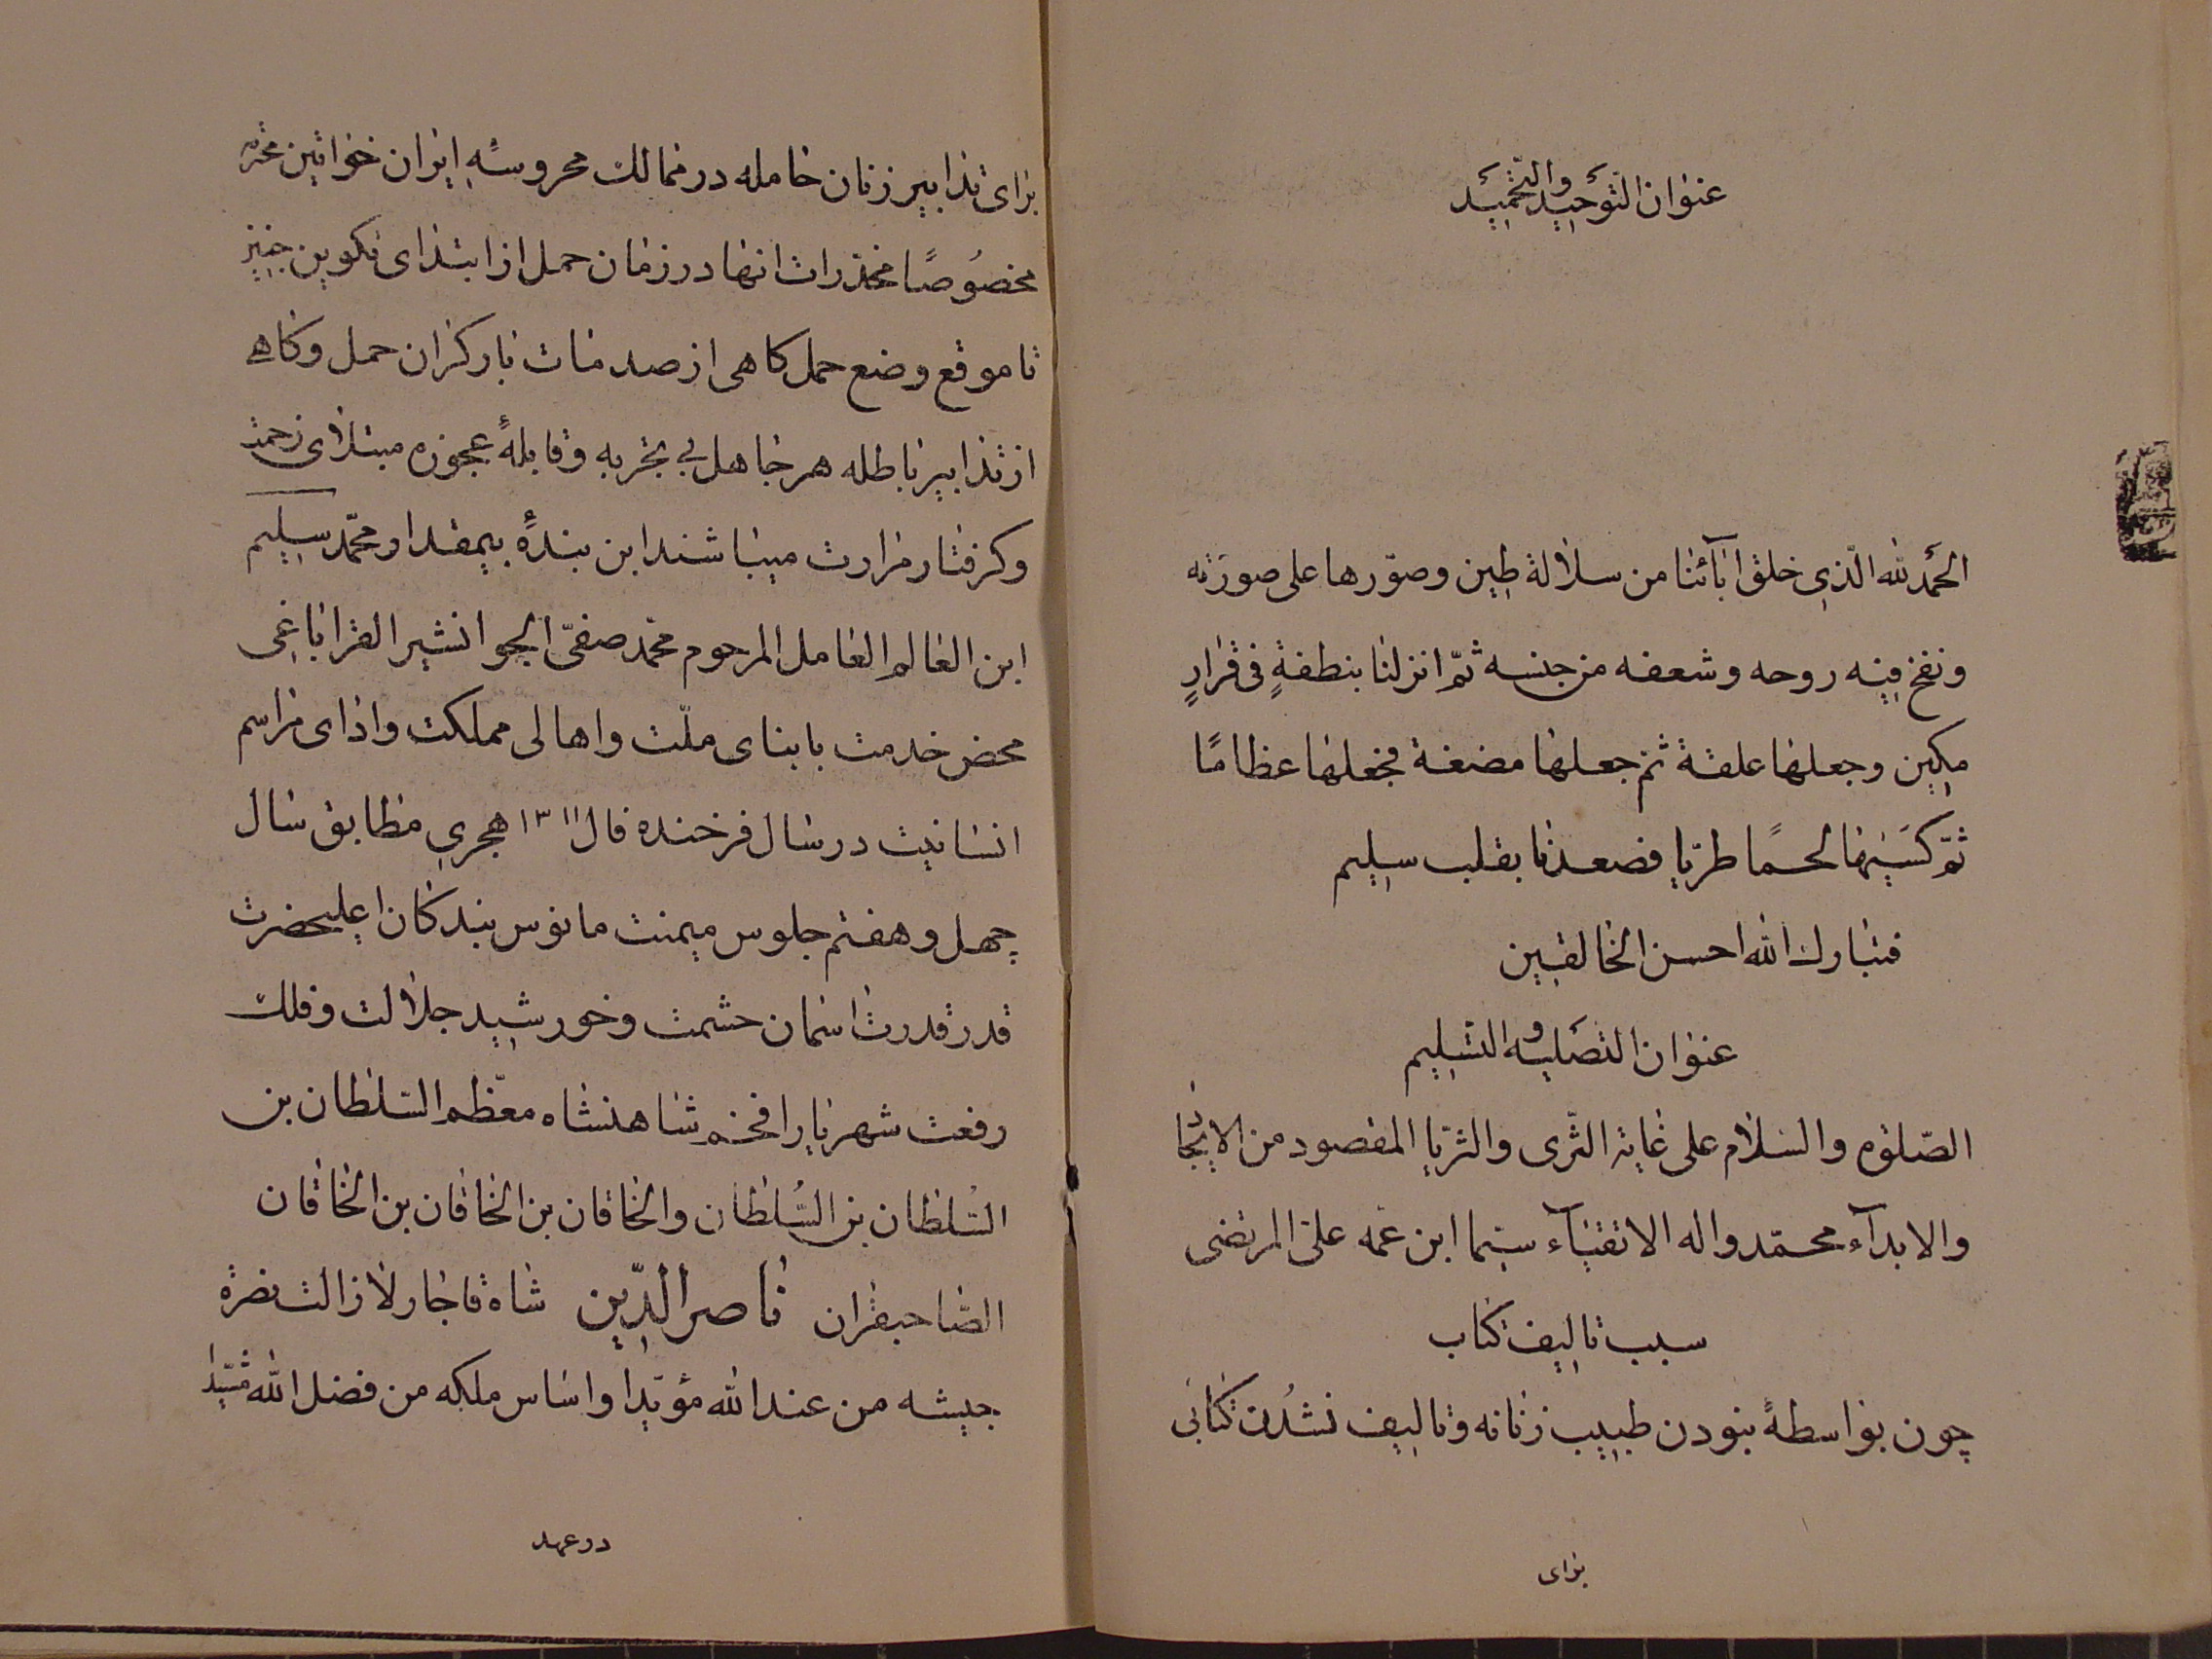 عنوان التوحيد والتّحميد
الحمد لله الّذي خلق ابآئنا من سلالة طين وصوّرها على صورته
ونفخ فيه روحه وشعفه من جنسه ثمّ انزلنا بنطفةٍ فى قرارٍ
مكين وجعلها علقة ثم جعلها مضغة فجعلها عظامًا
ثمّ كسَيْنها لحمًا طريّا فصعدنا بقلب سليم
فتبارك الله احسن الخالقين
عنوان التصليه والتسليم
الصّلوه والسلام على غاية الثّرى والثريّا المقصود من الايجاد
والابدآء محمّد واله الاتقيآء سيّما ابن عمّه علىّ المرتضى
سبب تاليف كتاب
چون بواسطهٔ نبودن طبيب زنانه وتاليف نشدن كتابى
براى
براى تدابير زنان حامله در ممالك محروسهٔ ايران خواتين محترمه
مخصُوصًا مخدرات انها در زمان حمل از ابتداى تكوين جنين
تا موقع وضع حمل كاهى از صدمات بار كران حمل وكاهى
از تدابير باطله هر جاهل بى تجربه وقابلهٔ عجوزه مبتلاى زحمت
وكرفتار مرارت ميباشند اين بندهٔ بيمقدار محمّد سليم
ابن العالم العامل المرحوم محمّد صفىّ الجوانشير القراباغى
محض خدمت بابناى ملّت واهالى مملكت واداى مراسم
انسانيت در سال فرخنده فال ۱۳۱۱ هجرى مطابق سال
چهل وهفتم جلوس ميمنت مانوس بندكان اعليحضرت
قدر قدرت اسمان حشمت وخورشيد جلالت وفلك
رفعت شهريار افخم شاهنشاه معظّم السّلطان بن
السّلطان بن السُّلطان والخاقان بن الخاقان بن الخاقان
الصّاحبقران ناصر الدّين شاه قاجار لازالت نصرة
جيشه من عند الله مؤيّدا واساس ملكه من فضل الله مشيّدا
در عهد